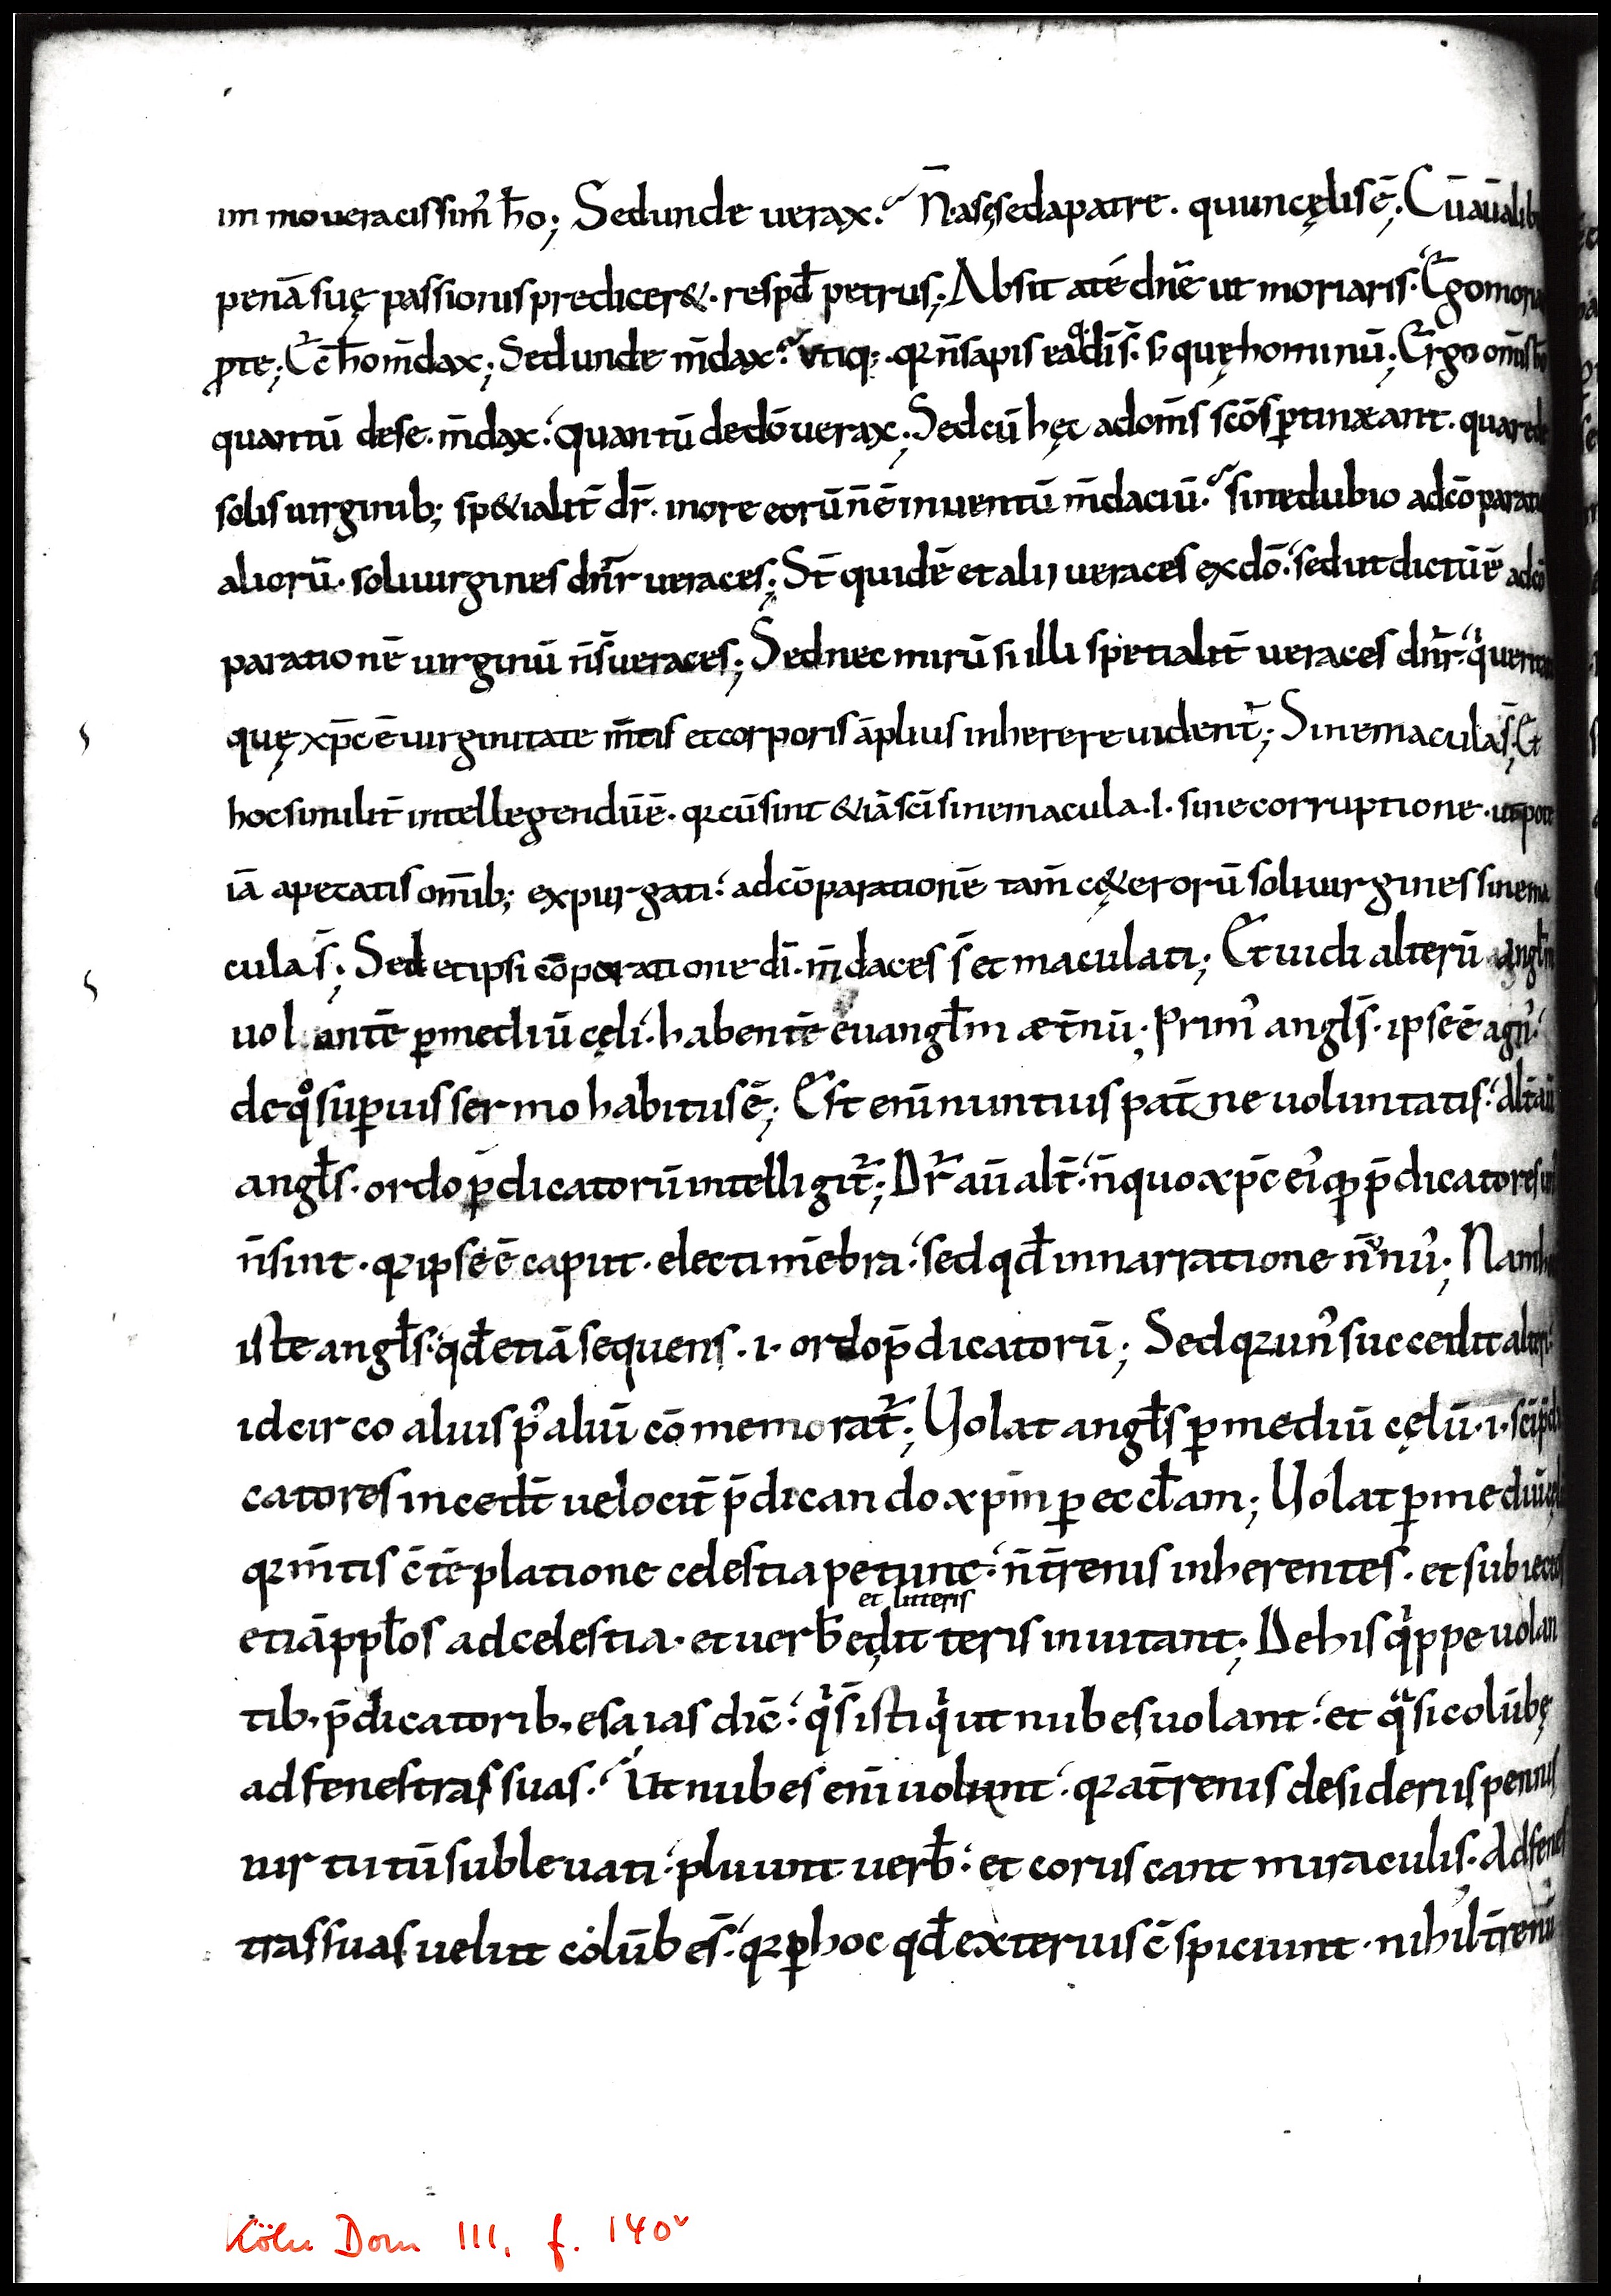 immo ueracissim᾽ ħo; Sed unde uerax? N̄ a sę sed a patre. qui in cęlis ē; Cū aū alibi
penā suę passionis prediceret. respd̄ petrus; Absit a te dn̄e ut moriaris. Ego moriar
ꝓ te; Ecc̄ ħo m̄dax; Sed unde m̄dax? Utiq; qꝛ n̄ sapis ea q̄ dī s̄. s; quę hominū; Ergo om̄is ħo
quantū de se. m̄dax. quantū de dō uerax; Sed cū hęc ad om̄s sc̄os ꝑtineant. quare de
solis uirginib; spetialit̄ dr̄. in ore eorū n̄ ē inuentū m̄daciū? sine dubio ad cōparationē
aliorū. soli uirgines dn̄r ueraces; St̄ quidē et alii ueraces ex dō. sed ut dictū ē ad cō
parationē uirginū n̄ s̄ ueraces; Sed nec mirū si illi spetialit̄ ueraces dn̄r. qͥ ueritati
quę xp̄c ē uirginitate m̄tis et corporis āplius inherere uident̄; Sine macula s̄; Et
hoc similit̄ intellegendū ē. qꝛ cū sint etiā sc̄i sine macula .i. sine corruptione. utpote
iā a pecatis om̄ib; expurgati. ad cōparationē tam̄ cęterorū soli uirgines sine ma
cula s̄; Sed et ipsi cōparatione dī. m̄daces s̄ et maculati; Et uidi alterū angl̄m
uolantē ꝑ mediū cęli. habentē euangl̄m æt̄nū; Prim᾽ angl̄s. ipse ē agn᾽.
de qͦ superius sermo habitus ē; Est enī nuntius pat̄ne uoluntatis. Alt̄ aū
angl̄s. ordo p̄dicatorū intelligit̄; Dr̄ aū alt̄. n̄ quo xp̄c ei᾽qꝫ p̄dicatores un᾽
n̄ sint. qꝛ ipse ē caput. electi mēbra. sed qd̄ in narratione n̄ nu᾽; Nam
iste angl̄s. qd̄ etiā sequens .i. ordo p̄dicatorū; Sed qꝛ un᾽ succedit alt̄i.
idcirco alius p᾽ aliū cōmemorat̄; Uolat angl̄s ꝑ mediū cęlū .i. sc̄i p̄di
catores incedt̄ uelocit̄ p̄dicando xpm̄ ꝑ eccl̄am; Uolat ꝑ mediū cęli
qꝛ m̄tis c̄tēplatione celestia petunt. n̄ t̄renis inherentes. et subiectos
et litteris
etiā pp̄los ad celestia. et uerb̄ et litteris inuitant; De his qͥppe uolan
tib; p̄dicatorib; esaias dic̄. qͥ s̄ isti qͥ ut nubes uolant. et qͣsi colūbę
ad fenestras suas? Ut nubes enī uolant. qꝛ a t̄renis desideriis pennis
uirtutū subleuati. pluunt uerb̄. et coruscant miraculis. Ad fenes
tras suas uelut colūb es̄. qꝛ ꝑ hoc qd̄ exterius c̄spiciunt. nihil t̄renū
Köln Dom 111, f. 140v